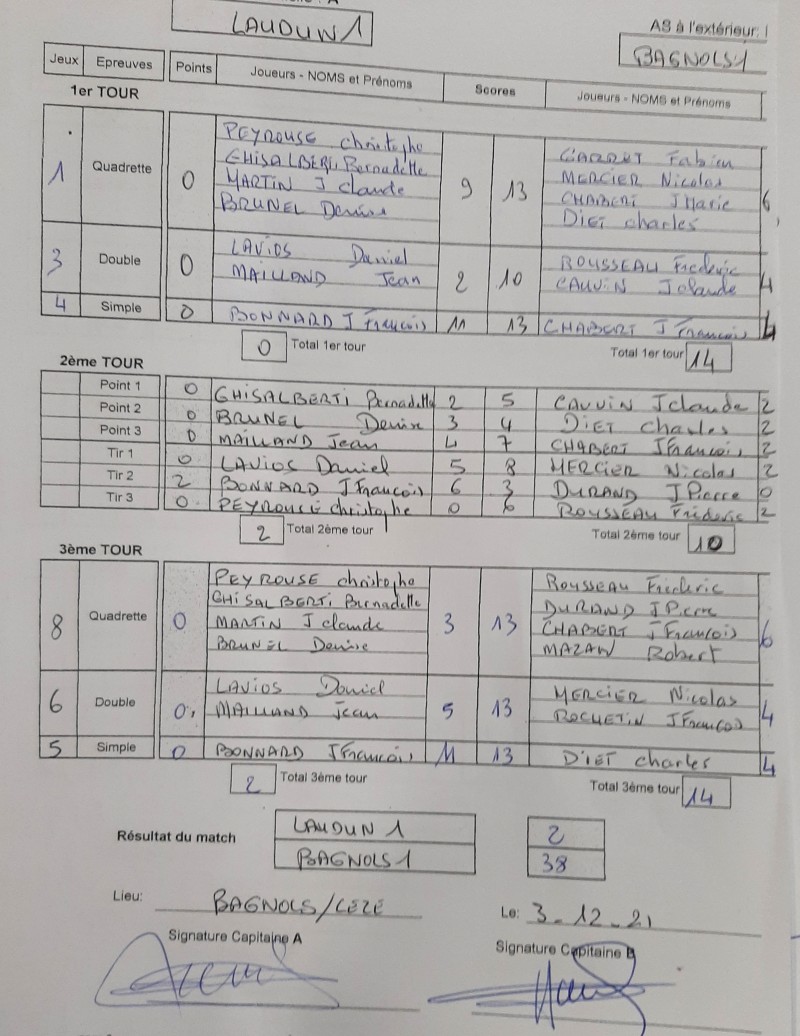 LAUDUN 1
AS à l'extérieur:
BAGNOLS 1
Jeux Epreuves Points Joueurs - NOMS et Prénoms Scores Joueurs - NOMS et Prénoms
1er TOUR
1 Quadrette 0 9 13 6
PEYROUSE christophe GARRET Fabien
GHISALBERTI Bernadette MERCIER Nicolas
MARTIN J claude CHABERT JMarie
BRUNEL Denise DIET charles
3 Double 0 2 10 4
LAVIOS Daniel ROUSSEAU Frederic
MAILLAND Jean CAUVIN Jclaude
4 Simple 0 BONNARD J François 11 13 CHABERT J François 4
0 Total 1er tour Total 1er tour 14
2ème TOUR
Point 1 0 GHISALBERTI Bernadette 2 5 CAUVIN Jclaude 2
Point 2 0 BRUNEL Denise 3 4 DIET charles 2
Point 3 0 MAILLAND Jean 4 7 CHABERT JFrancois 2
Tir 1 0 LAVIOS Daniel 5 8 MERCIER Nicolas 2
Tir 2 2 BONNARD JFrancois 6 3 DURAND JPierre 0
Tir 3 0 PEYROUSE christophe 0 6 ROUSSEAU Frederic 2
2 Total 2ème tour Total 2ème tour 10
3ème TOUR
8 Quadrette 0 3 13 6
PEYROUSE christophe ROUSSEAU Frederic
GHISALBERTI Bernadette DURAND JPierre
MARTIN J claude CHABERT JFrancois
BRUNEL Denise MAZAN Robert
6 Double 0 5 13 4
LAVIOS Daniel MERCIER Nicolas
MAILLAND Jean ROCHETIN JFrancois
5 Simple 0 BONNARD JFrancois 11 13 DIET charles 4
2 Total 3ème tour Total 3ème tour 14
Résultat du match
LAUDUN 1 2
BAGNOLS 1 38
Lieu: BAGNOLS/CEZE Le: 3-12-21
Signature Capitaine A Signature Capitaine B